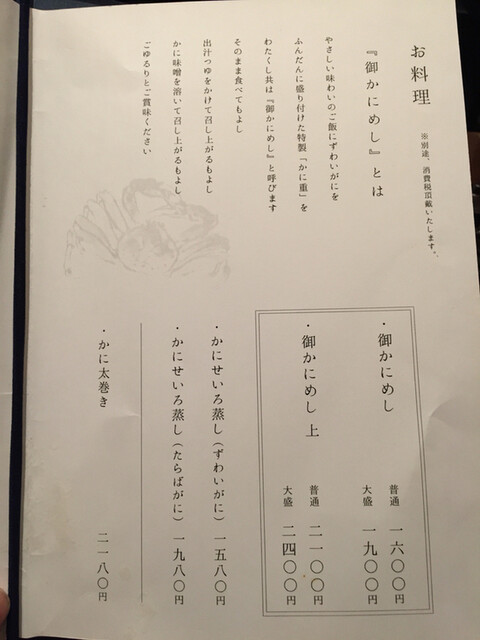 お料理
※別途、消費税頂戴いたします。
『御かにめし』とは
やさしい味わいのご飯にずわいがにを
ふんだんに盛り付けた特製「かに重」を
わたくし共は『御かにめし』と呼びます
そのまま食べてもよし
出汁つゆをかけて召し上がるもよし
かに味噌を溶いて召し上がるもよし
ごゆるりとご賞味ください
・御かにめし
普通 一六〇〇円
大盛 一九〇〇円
・御かにめし 上
普通 二一〇〇円
大盛 二四〇〇円
・かにせいろ蒸し(ずわいがに) 一五八〇円
・かにせいろ蒸し(たらばがに) 一九八〇円
・かに太巻き 二一八〇円